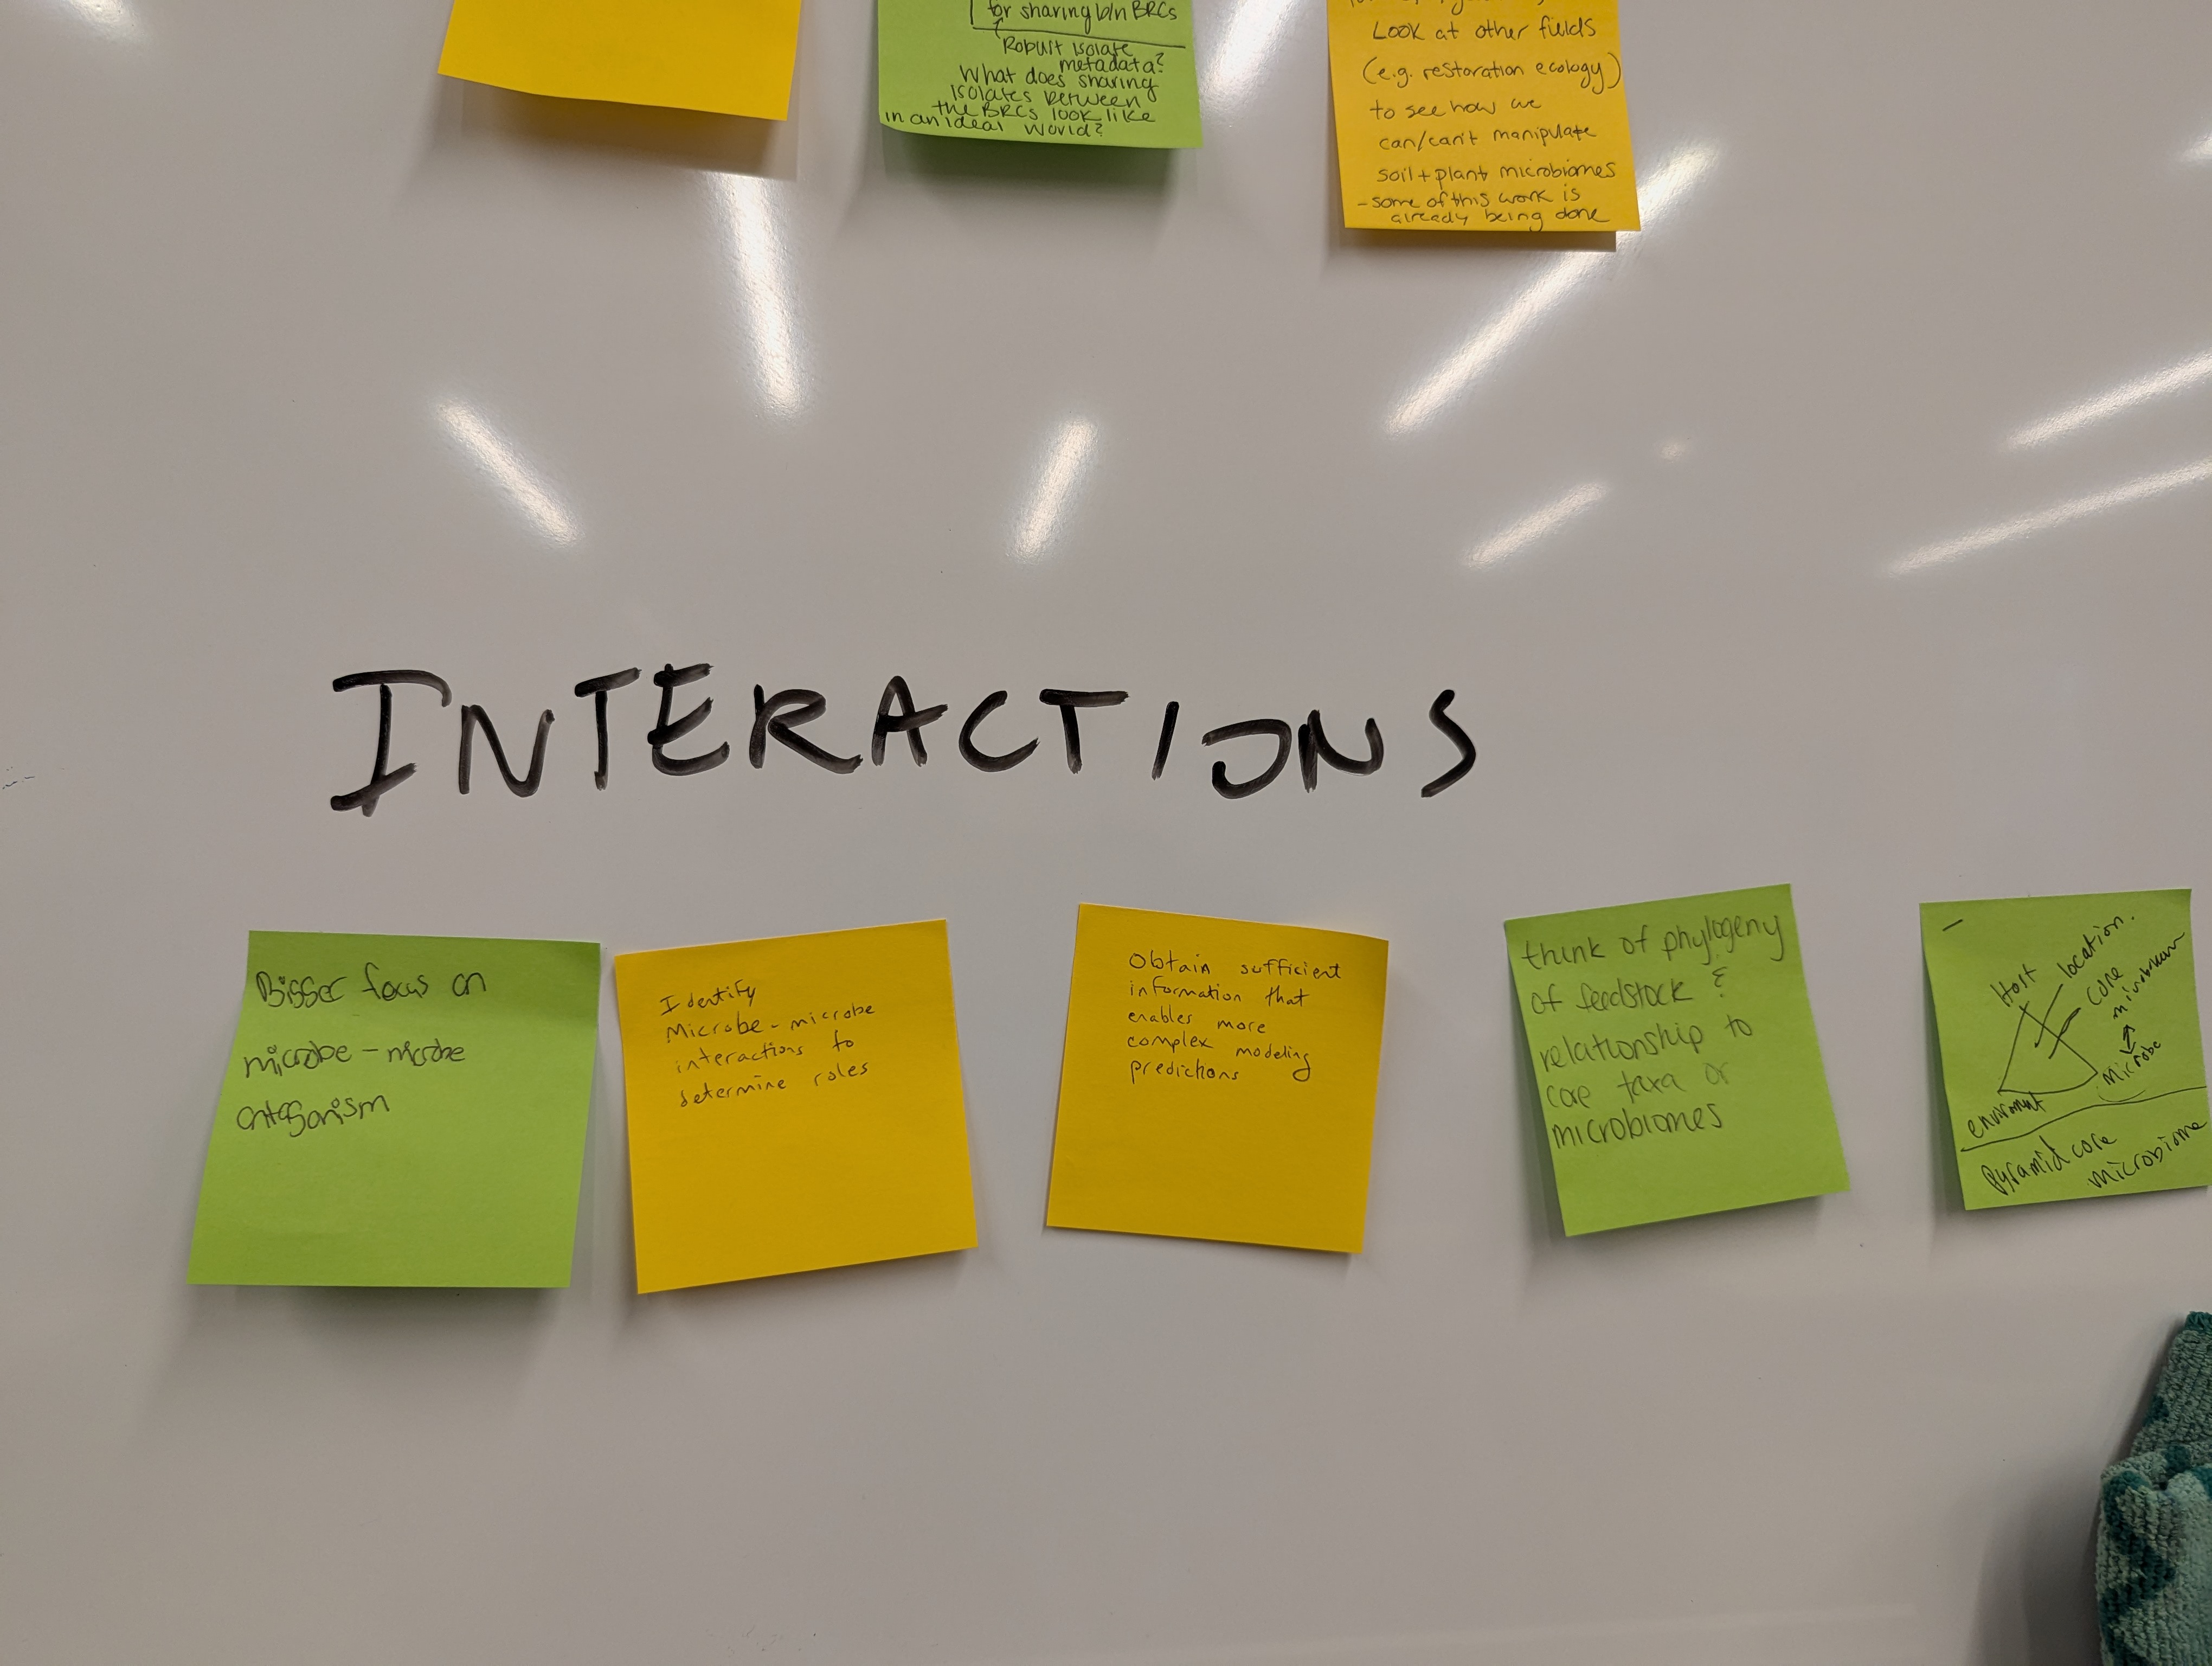 for sharing b/n BRCs
Robust isolate
metadata?
What does sharing
isolates between
the BRCs look like
in an ideal world?
Look at other fields
(e.g. restoration ecology)
to see how we
can/can't manipulate
soil + plant microbiomes
- some of this work is
already being done
INTERACTIONS
Bigger focus on
microbe - microbe
antagonism
Identify
Microbe - microbe
interactions to
determine roles
Obtain sufficient
information that
enables more
complex modeling
predictions
think of phylogeny
of feedstock &
relationship to
core taxa or
microbiomes
Host
location.
core
microbe
Pyramid core
microbiome